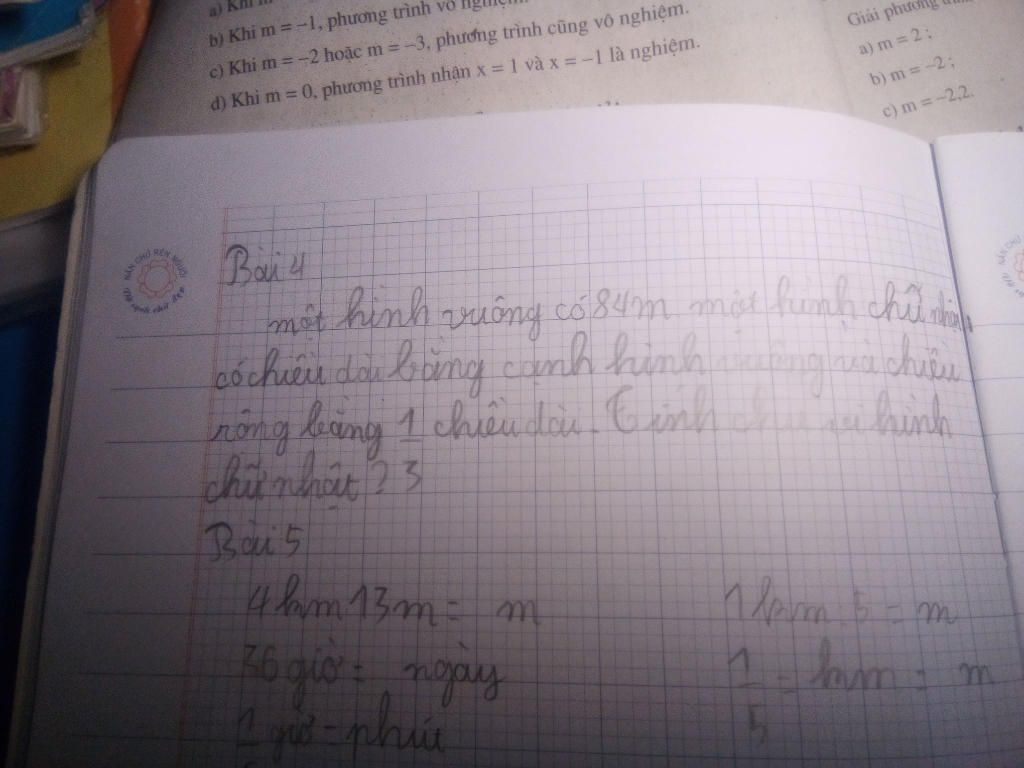 a) Khi m
b) Khi m = −1, phương trình vô nghiệm.
c) Khi m = −2 hoặc m = −3, phương trình cũng vô nghiệm.
d) Khi m = 0, phương trình nhận x = 1 và x = −1 là nghiệm.
Giải phương
a) m = 2 ;
b) m = −2 ;
c) m = −2,2.
Bài 4
một hình vuông có 84m một hình chữ nhật
có chiều dài bằng cạnh hình vuông và chiều
rộng bằng 1/3 chiều dài. Tính chu vi hình
chữ nhật ?
Bài 5
4hm 13m = m
1km 5 = m
36 giờ = ngày
1/5 = hm = m
1 giờ = phút